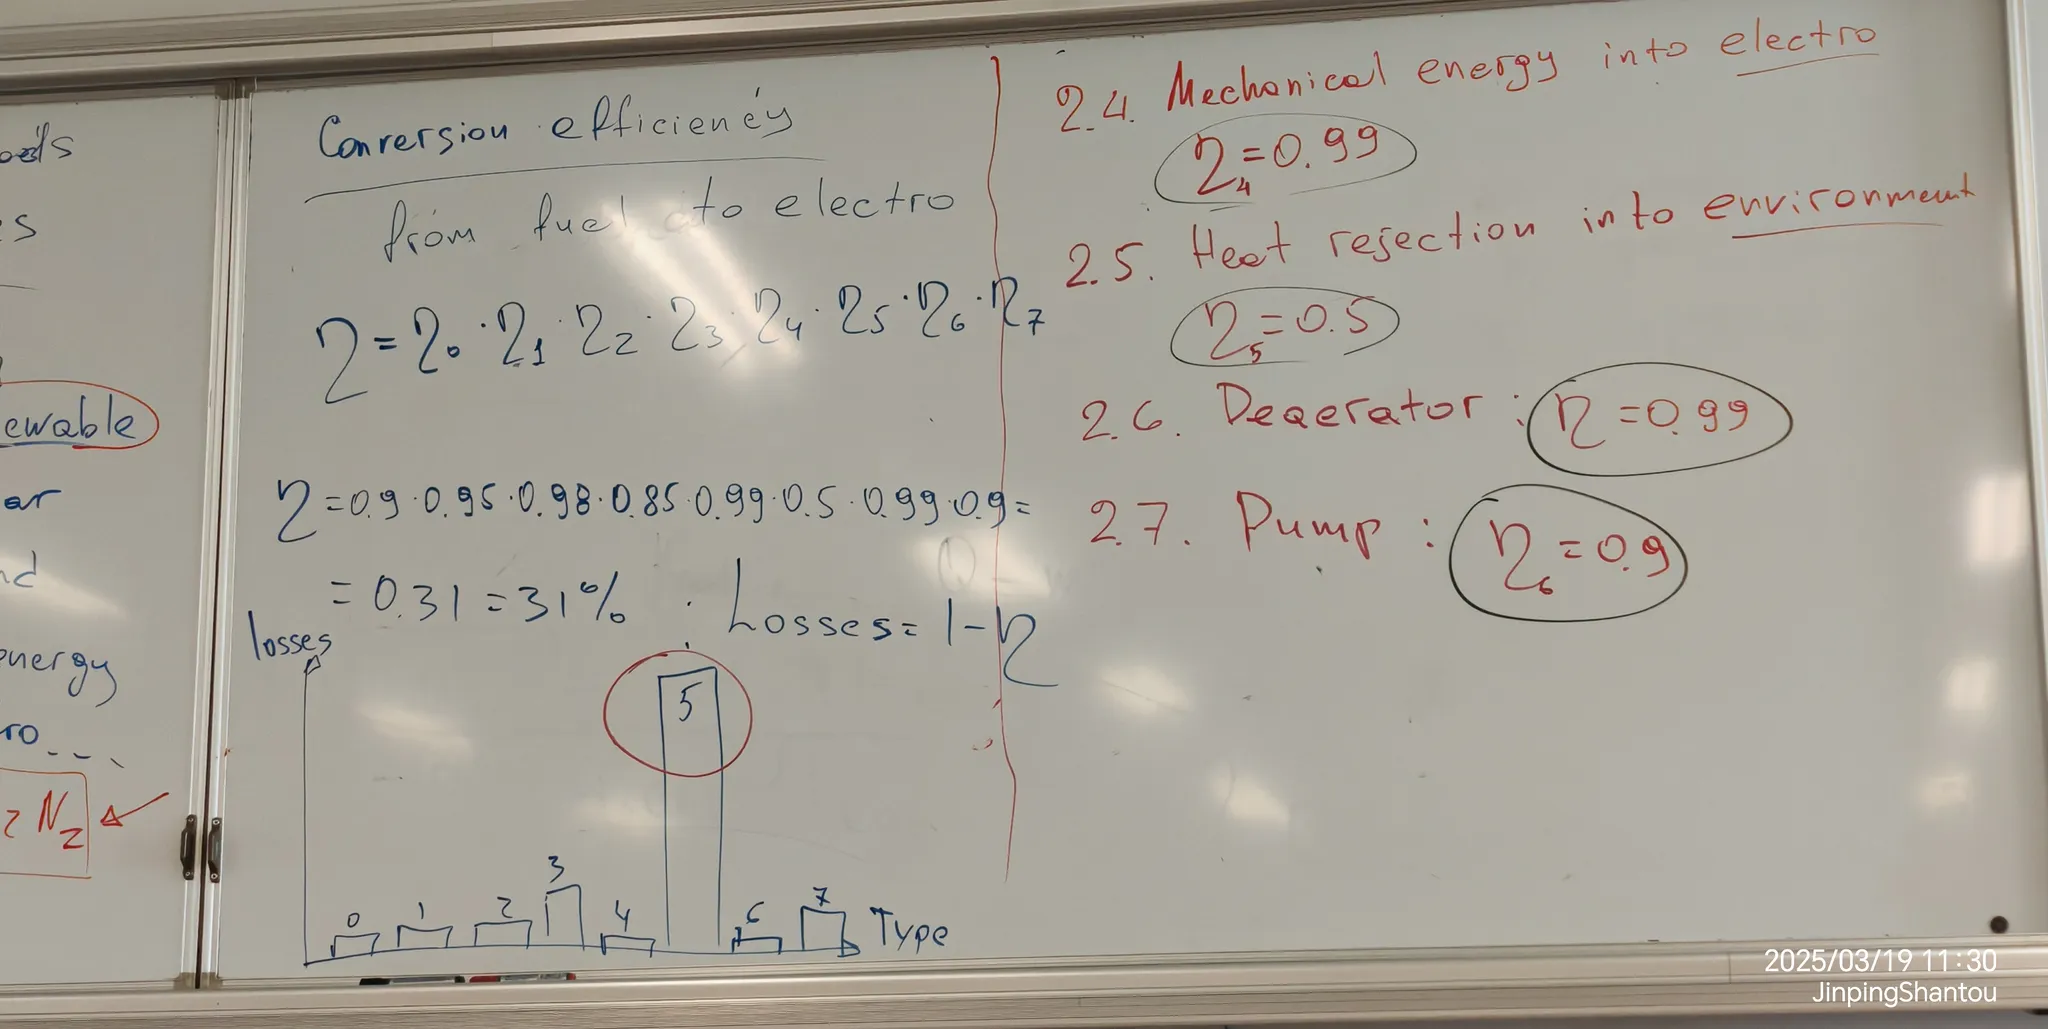 oods
s
ewable
ar
nd
energy
ro....
N2
Conversion efficiency
from fuel into electro
η = η0 · η1 · η2 · η3 · η4 · η5 · η6 · η7
η = 0.9 · 0.95 · 0.98 · 0.85 · 0.99 · 0.5 · 0.99 · 0.9 =
= 0.31 = 31%
Losses = 1 - η
losses
5
3
0 1 2 4 6 7
Type
2.4. Mechanical energy into electro
η4 = 0.99
2.5. Heat rejection into environment
η5 = 0.5
2.6. Deaerator : η = 0.99
2.7. Pump : η6 = 0.9
2025/03/19 11:30
JinpingShantou